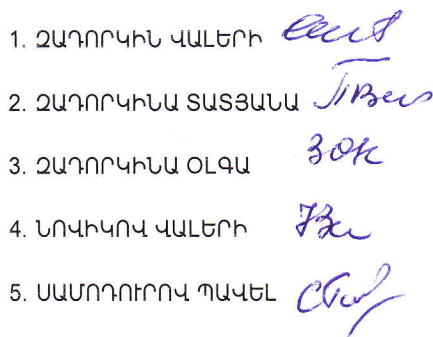 1. ԶԱԴՈՐԿԻՆ ՎԱԼԵՐԻ
2. ԶԱԴՈՐԿԻՆԱ ՏԱՏՅԱՆԱ
3. ԶԱԴՈՐԿԻՆԱ ՕԼԳԱ ЗОК
4. ՆՈՎԻԿՈՎ ՎԱԼԵՐԻ
5. ՍԱՄՈԴՈՒՐՈՎ ՊԱՎԵԼ